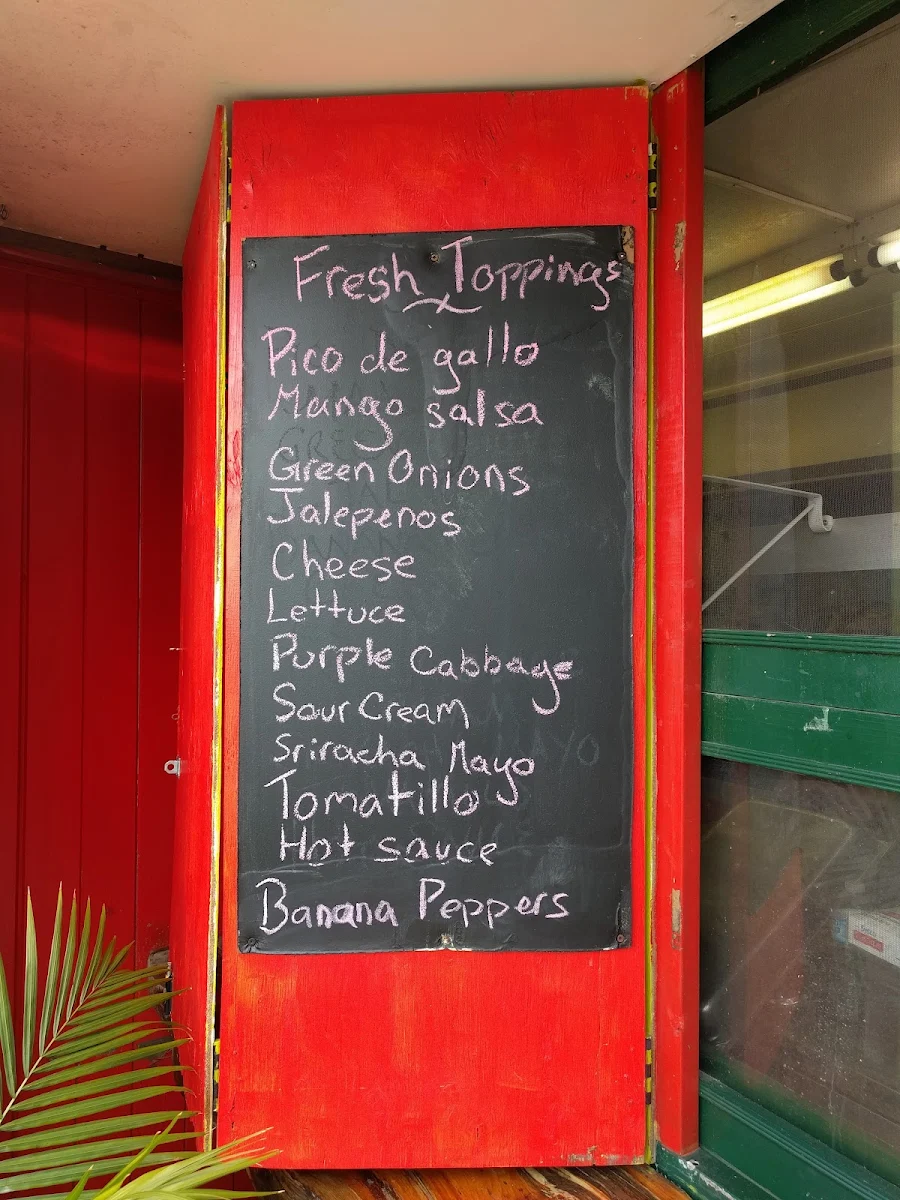 Fresh Toppings
Pico de gallo
Mango salsa
Green Onions
Jalepenos
Cheese
Lettuce
Purple Cabbage
Sour Cream
Sriracha Mayo
Tomatillo
Hot sauce
Banana Peppers